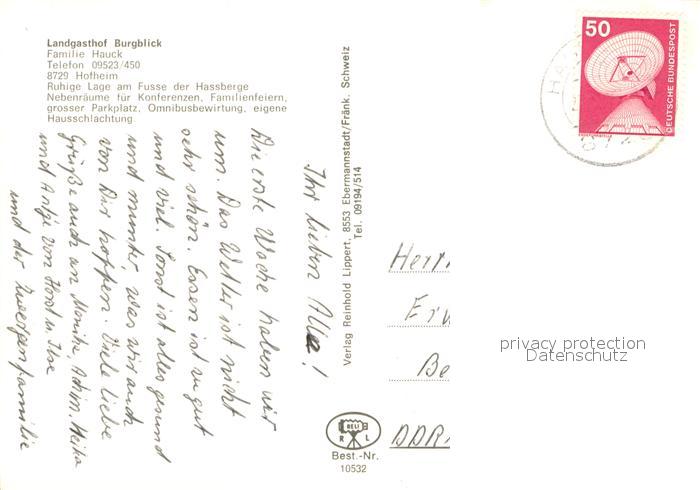 Landgasthof Burgblick
Familie Hauck
Telefon 09523/450
8729 Hofheim
Ruhige Lage am Fusse der Hassberge
Nebenräume für Konferenzen, Familienfeiern,
grosser Parkplatz, Omnibusbewirtung, eigene
Hausschlachtung
Ihr lieben Alle!
Die erste Woche haben wir
um. Das Wetter ist nicht
sehr schön. Essen ist zu gut
und viel. Sonst ist alles gesund
und munter, was wir auch
von Dir hoffen. Viele liebe
Grüße auch an Monika, Achim, Heike
und Antje von Horst u. Ilse
und der Zwergenfamilie
Verlag Reinhold Lippert, 8553 Ebermannstadt/Fränk. Schweiz
Tel. 09194/514
50
DEUTSCHE BUNDESPOST
Herrn
Erw
Be
DDR
privacy protection
Datenschutz
BELI
R L
Best.-Nr.
10532